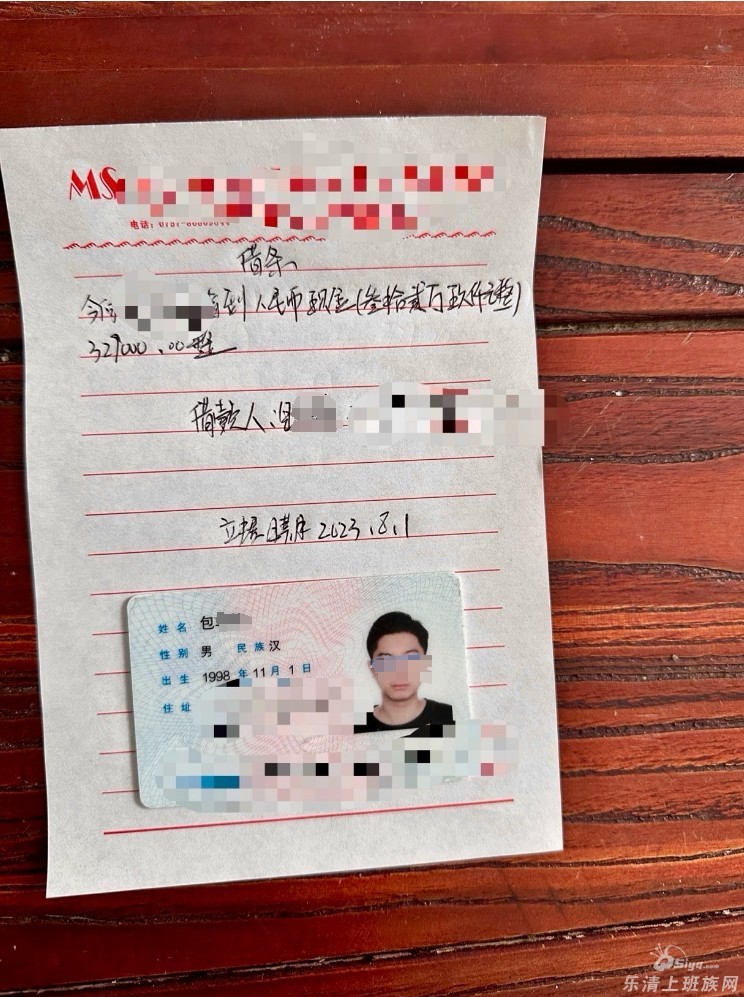 MS
电话:0757-
借条
今向 借到人民币现金(叁拾贰万玖仟元整)
329000.00整
借款人:包
立据日期 2023.8.1
姓名 包
性别 男 民族 汉
出生 1998 年 11 月 1 日
住址
Siyo.com
乐清上班族网